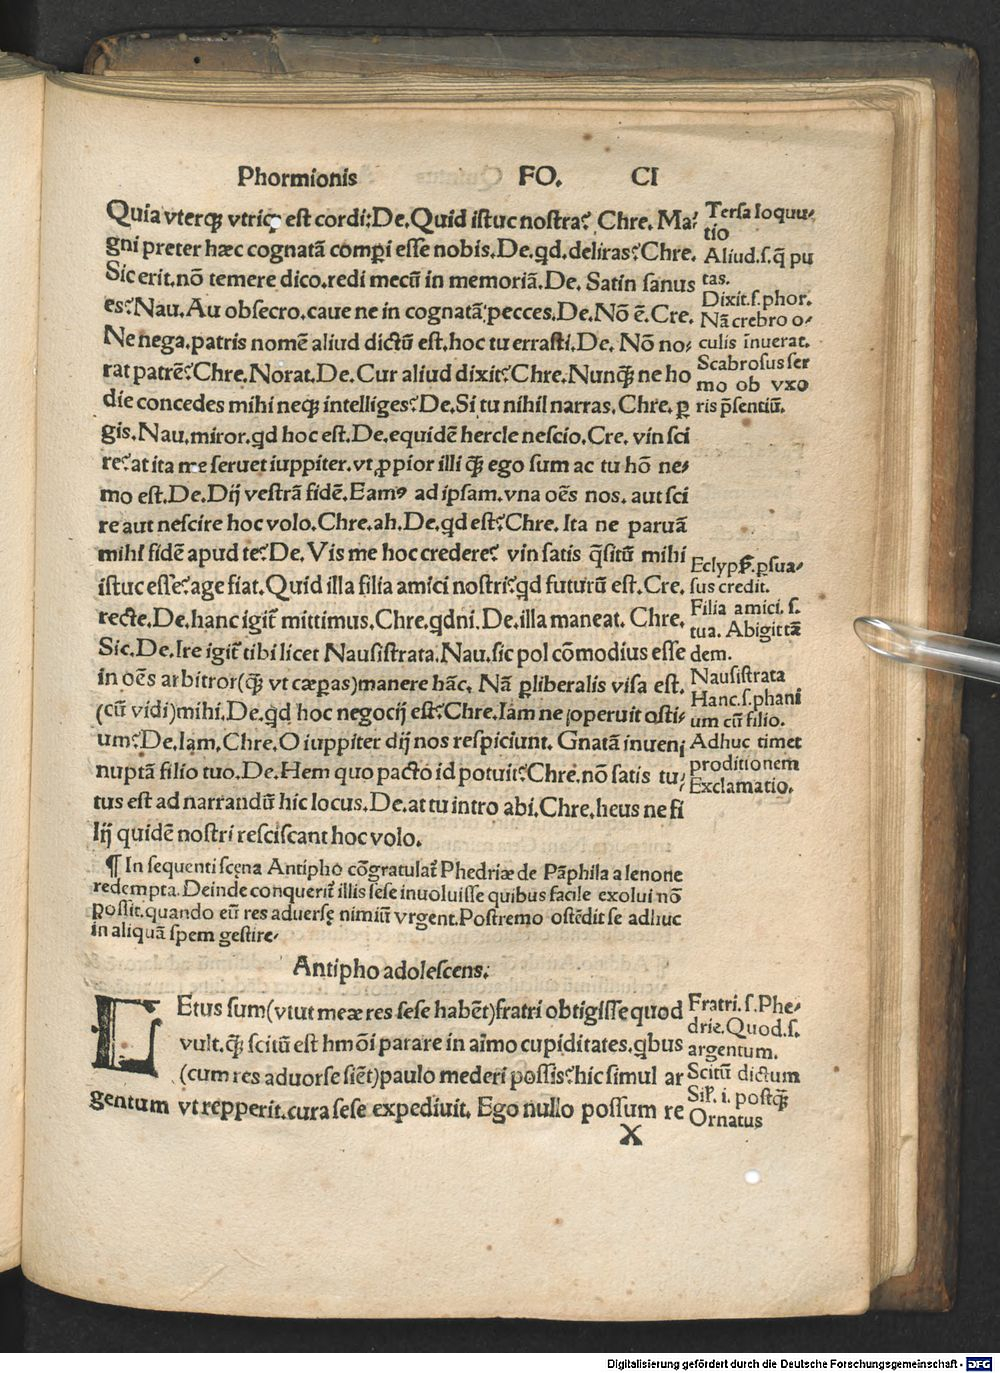 Phormionis FO. CI
Quia vterqꝫ vtriqꝫ est cordi:De.Quid istuc nostra? Chre. Ma⸗
gni preter hæc cognatā compi esse nobis.De.qd.deliras?Chre.
Sic erit.nō temere dico.redi mecū in memoriā.De. Satin sanus
es?Nau.Au obsecro.caue ne in cognatā pecces.De.Nō ē.Cre.
Ne nega.patris nomē aliud dictū est.hoc tu errasti.De. Nō no⸗
rat patrē?Chre.Norat.De.Cur aliud dixit?Chre.Nunqꝫ ne ho
die concedes mihi neqꝫ intelliges?De.Si tu nihil narras.Chre.ꝑ
gis.Nau.miror.qd hoc est.De.equidē hercle nescio.Cre. vin sci
re?at ita me seruet iuppiter.vt ꝓpior illi qꝫ ego sum ac tu hō ne⸗
mo est.De.Dij vestrā fidē.Eamꝰ ad ipsam.vna oēs nos. aut sci
re aut nescire hoc volo.Chre.ah.De.qd est?Chre. Ita ne paruā
mihi fidē apud te?De.Vis me hoc credere? vin satis q̄sitū mihi
istuc esse?age fiat.Quid illa filia amici nostri?qd futurū est.Cre.
recte.De.hanc igit̄ mittimus.Chre.qdni.De.illa maneat. Chre.
Sic.De.Ire igit̄ tibi licet Nausistrata.Nau.sic pol cōmodius esse
in oēs arbitror(qꝫ vt cæpas)manere hāc. Nā ꝑliberalis visa est.
(cū vidi)mihi.De.qd hoc negocij est?Chre.Iam ne operuit osti⸗
um?De.Iam.Chre.O iuppiter dij nos respiciunt. Gnatā inueni
nuptā filio tuo.De.Hem quo pacto id potuit?Chre.nō satis tu⸗
tus est ad narrandū hic locus.De.at tu intro abi.Chre.heus ne fi
lij quidē nostri resciscant hoc volo.
¶ In sequenti scęna Antipho cōgratulat̄ Phedriæ de Pāphila a lenone
redempta.Deinde conquerit̄ illis sese inuoluisse quibus facile exolui nō
possit.quando eū res aduersę nimiū vrgent.Postremo ostēdit se adhuc
in aliquā spem gestire⸗
Antipho adolescens.
LEtus sum(vtut meæ res sese habēt)fratri obtigisse quod
vult.qꝫ scitū est hmōi parare in aīmo cupiditates.qbus
(cum res aduorse siēt)paulo mederi possis?hic simul ar
gentum vt repperit.cura sese expediuit. Ego nullo possum re
X
Tersa loquu⸗
tio
Aliud.s.q̄ pu
tas.
Dixit.s.phor.
Nā crebro o⸗
culis inuerat.
Scabrosus ser
mo ob vxo
ris p̄sentiū.
ꝑsua⸗
sus credit.
Filia amici.s.
tua. Abigittā
dem.
Nausistrata
Hanc.s.phani
um cū filio.
Adhuc timet
proditionem
Exclamatio.
Fratri.s.Phe⸗
drie.Quod.s.
argentum.
Scitū dictum
i. postqꝫ
Ornatus
Digitalisierung gefördert durch die Deutsche Forschungsgemeinschaft - DFG